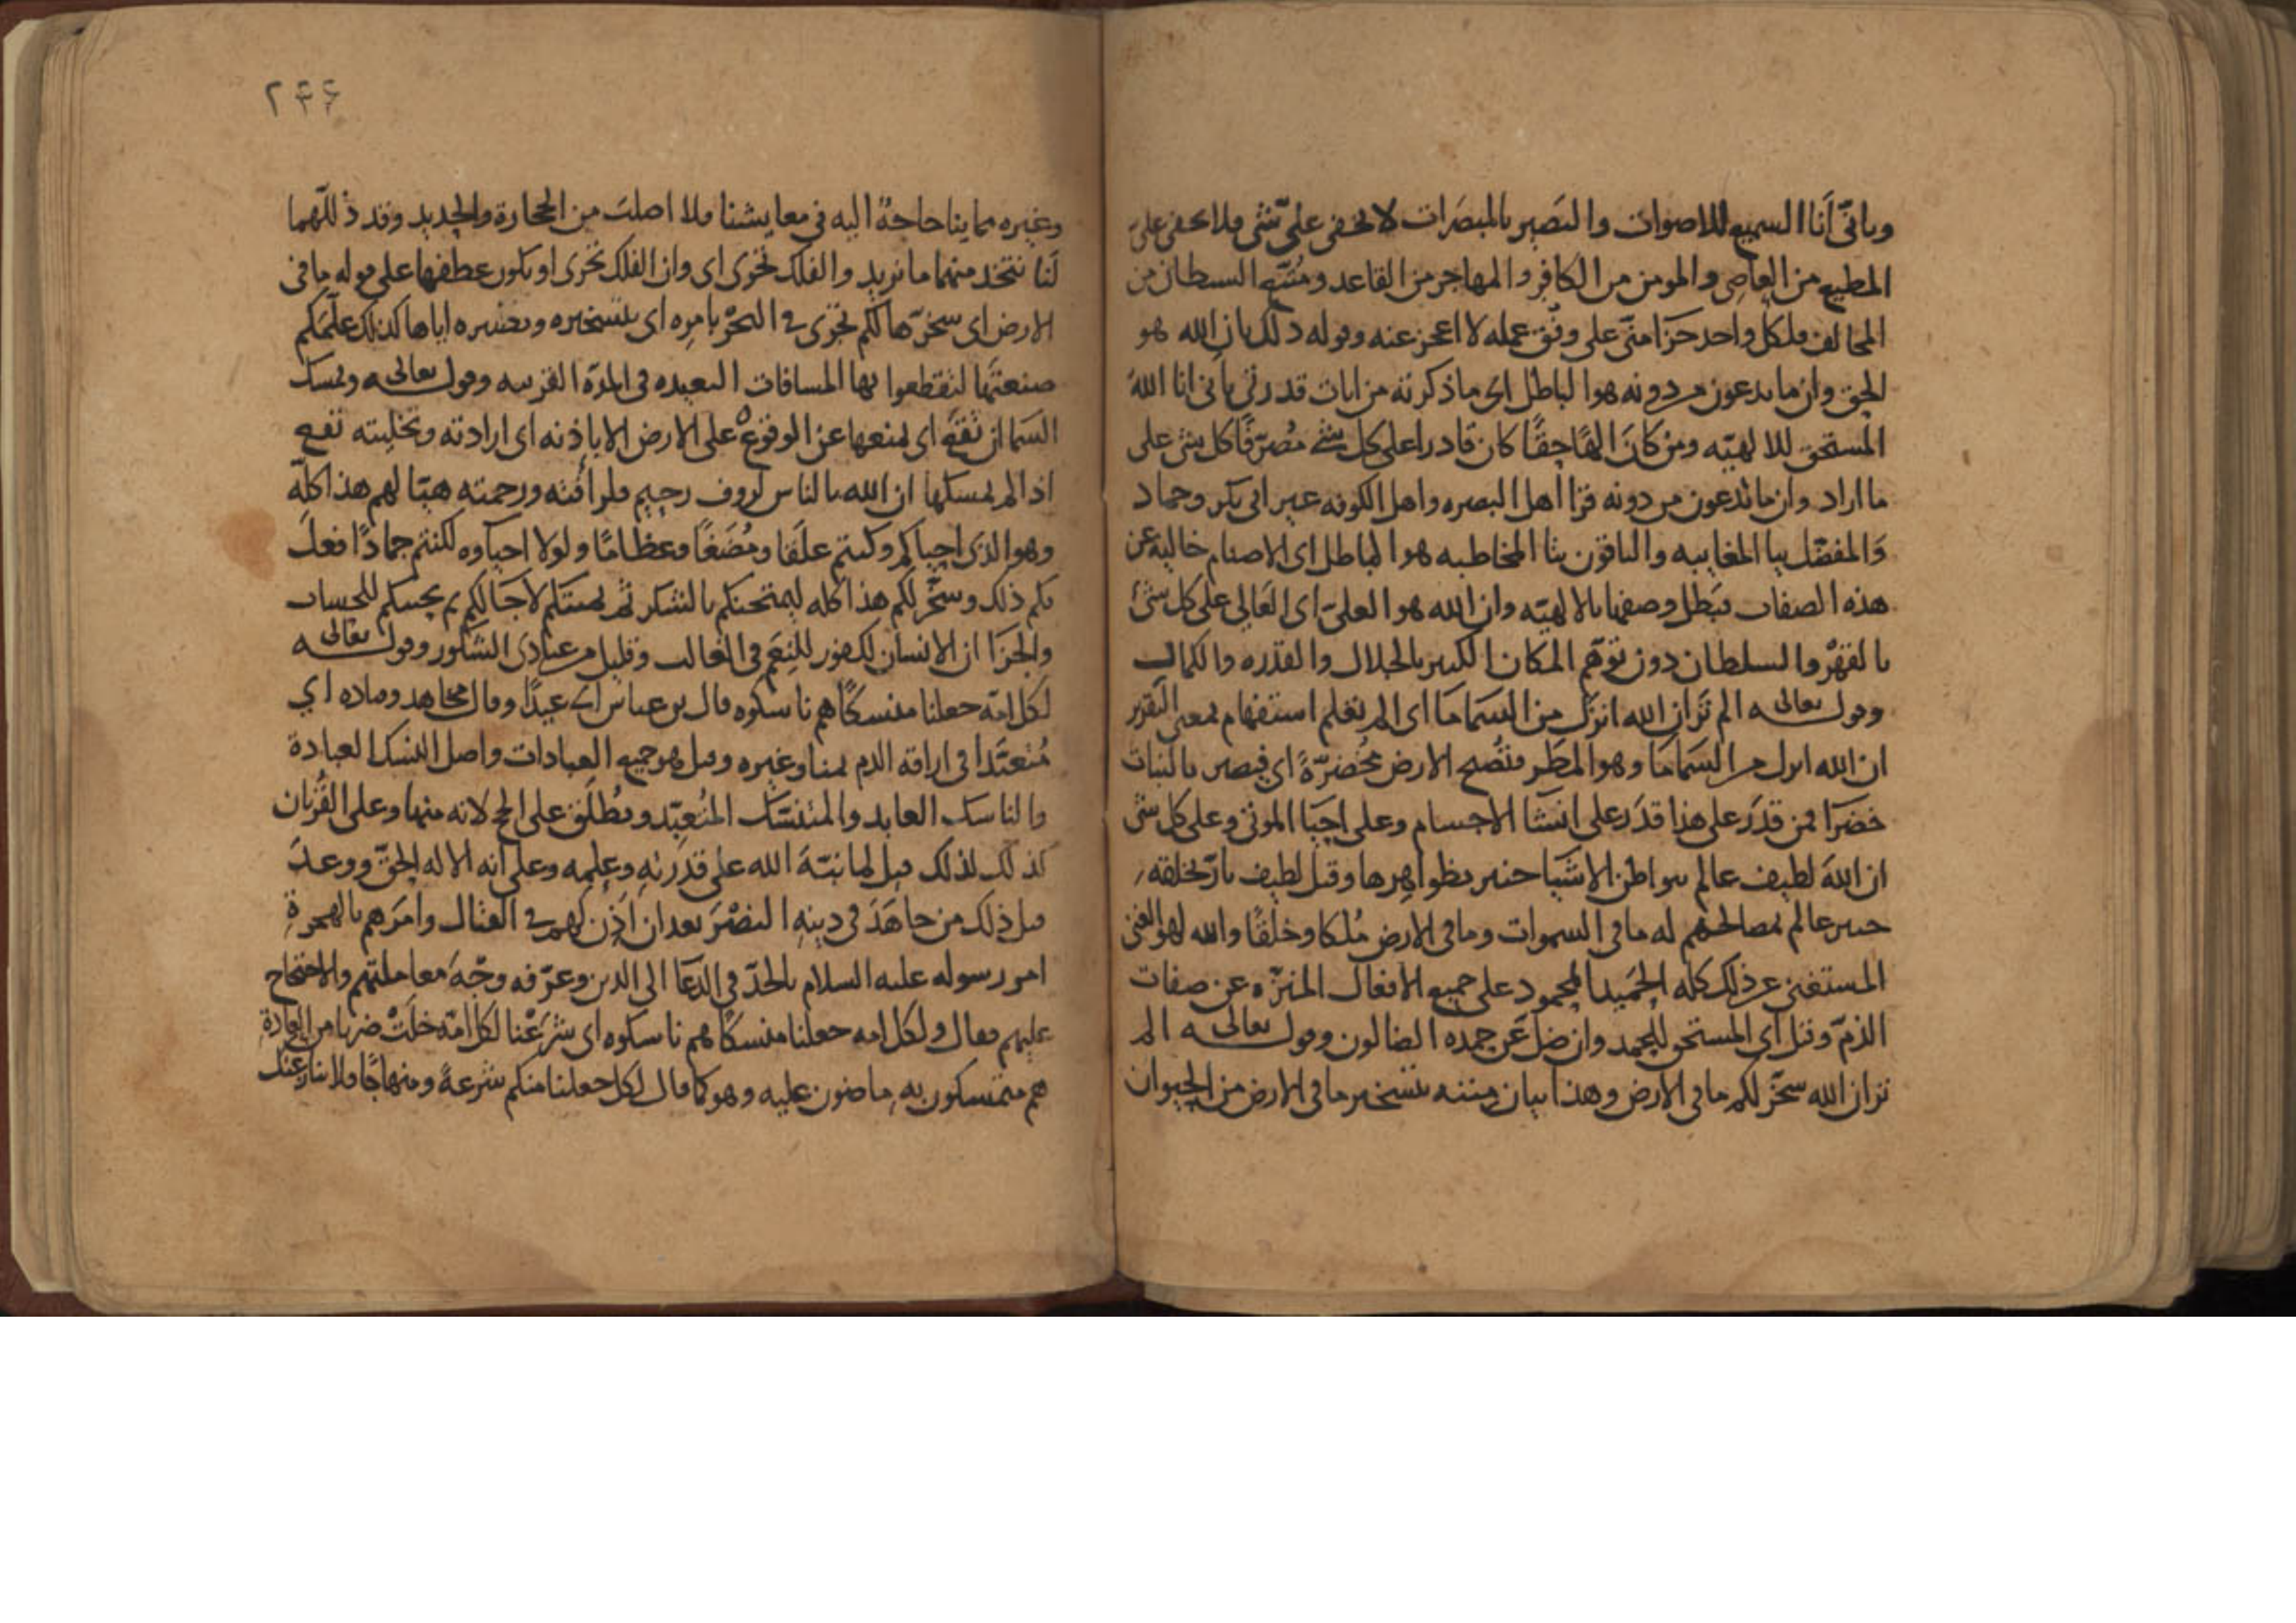 وباني أنا السميع للاصوات والبصير بالمبصرات لا تخفى علي شي فلا يخفى علي
المطيع من العاصي والمومن من الكافر والمهاجر من القاعد ومتبع الشيطان من
المخالف ولكل واحد جزا مني على وفق عمله لا اعجز عنه وقوله ذلك بان الله هو
الحق وان ما يدعون من دونه هو الباطل اي ما ذكرته من ايات قدرتي باني انا الله
المستحق للالهيه ومن كان الها حقا كان قادرا على كل شي مصرفا كل شي على
ما اراد وان ما تدعون من دونه قرا اهل البصره واهل الكوفه غير ابي بكر وحماد
والمفضل بيا المغايبه والباقون بتا المخاطبه هو الباطل اي الاصنام خاليه عن
هذه الصفات فبطل وصفها بالالهيه وان الله هو العلي اي العالي على كل شي
بالقهر والسلطان دون توهم المكان الكبير بالجلال والقدره والكمال
وقوله تعالى الم تر ان الله انزل من السما ما اي الم تعلم استفهام بمعنى التقرير
ان الله انزل من السما ما وهو المطر فتصبح الارض مخضرة اي فيصير بالنبات
خضرا فمن قدر على هذا قدر على انشا الاجسام وعلى احيا الموتى وعلى كل شي
ان الله لطيف عالم ببواطن الاشيا خبير بظواهرها وقيل لطيف بارزاق خلقه
خبير عالم بمصالحهم له ما في السموات وما في الارض ملكا وخلقا والله لهو الغني
المستغني عن ذلك كله الحميد المحمود على جميع الافعال المنزه عن صفات
الذم وقيل اي المستحق للحمد وان ضل عن حمده الضالون وقوله تعالى الم
تر ان الله سخر لكم ما في الارض وهذا بيان مننه بتسخير ما في الارض من الحيوان
٢٤٤
وغيره مما بنا حاجة اليه في معايشنا فلا اصلب من الحجارة والحديد وقد ذللهما
لنا نتخذ منهما ما نريد والفلك تجري اي وان الفلك تجري او يكون عطفها على قوله ما في
الارض اي سخرها لكم تجري في البحر بامره اي بتسخيره وتيسيره اياها كذلك علمكم
صنعتها لتقطعوا بها المسافات البعيده في المدة القريبه وقوله تعالى ويمسك
السما ان تقع اي يمنعها عن الوقوع على الارض الا باذنه اي ارادته وتخليته تقع
اذا لم يمسكها ان الله بالناس لروف رحيم فلرأفته ورحمته هيا لهم هذا كله
وهو الذي احياكم وكنتم علقا ومضغا وعظاما ولولا احياوه لكنتم جمادا فعل
بكم ذلك وسخر لكم هذا كله ليمتحنكم بالشكر ثم يميتكم لآجالكم ثم يحييكم للحساب
والجزا ان الانسان لكفور للنعم في الغالب وقليل من عبادي الشكور وقوله تعالى
لكل امة جعلنا منسكا هم ناسكوه قال بن عباس اي عيدا وقال مجاهد وقتاده اي
متعبدا في اراقه الدم بمنا وغيره وقيل هو جميع العبادات واصل النسك العبادة
والناسك العابد والمتنسك المتعبد ويطلق على الحج لانه منها وعلى القربان
كذلك لذلك قيل لما نبه الله على قدرته وعلمه وعلى انه الاله الحق ووعد
قبل ذلك من جاهد في دينه النصر بعد ان اذن لهم في القتال وامرهم بالهجرة
امر رسوله عليه السلام بالجد في الدعا الى الدين وعرفه وجه معاملتهم والاحتجاج
عليهم فقال ولكل امه جعلنا منسكا هم ناسكوه اي شرعنا لكل امة خلت ضربا من العبادة
هم متمسكون به ماضون عليه وهو كما قال لكل جعلنا منكم شرعة ومنهاجا فلا ينازعنك